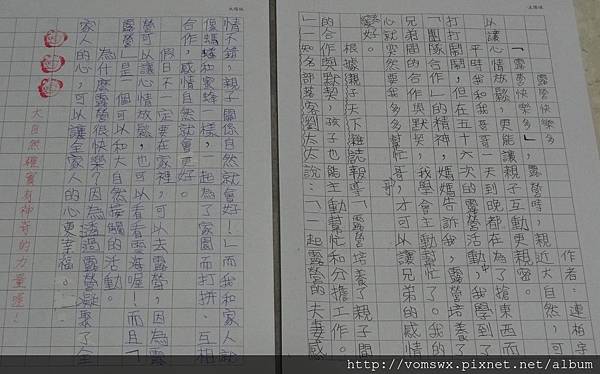 露營快樂多
作者:連柏宇
「露營快樂多」,露營時,親近大自然,可
以讓心情放鬆,更能讓親子互動更親密。
平時我和我哥哥一天到晚都在為了搶東西而
打打鬧鬧,但在五十六次的露營活動中,我學到了
「團隊合作」的精神,媽媽告訴我,露營培養了
兄弟間的合作與默契,我學會主動幫忙了。我的
心就突然要我多多幫忙哥哥,才可以讓兄弟的感情
變好。
根據親子天下雜誌報導「露營培養了親子間
的合作與默契,孩子也能主動幫忙和分擔工作。
」一知名部落客劉太太說:「一起露營的夫妻感
情不錯,親子關係自然就會好!」而我和家人就
像螞蟻和蜜蜂一樣,一起為了家園而打拼、互相
合作,感情自然就會更好。
假日不一定要在家裡,可以去露營,因為露
營可以讓心情放鬆,也可以看看雲海喔!而且「
露營」是一個可以和大自然接觸的活動。
為什麼露營很快樂?因為透過露營凝聚了全
家人的心,可以讓全家人的心更幸福。
大自然確實有神奇的力量喔!
http://vomswx.pixnet.net/album